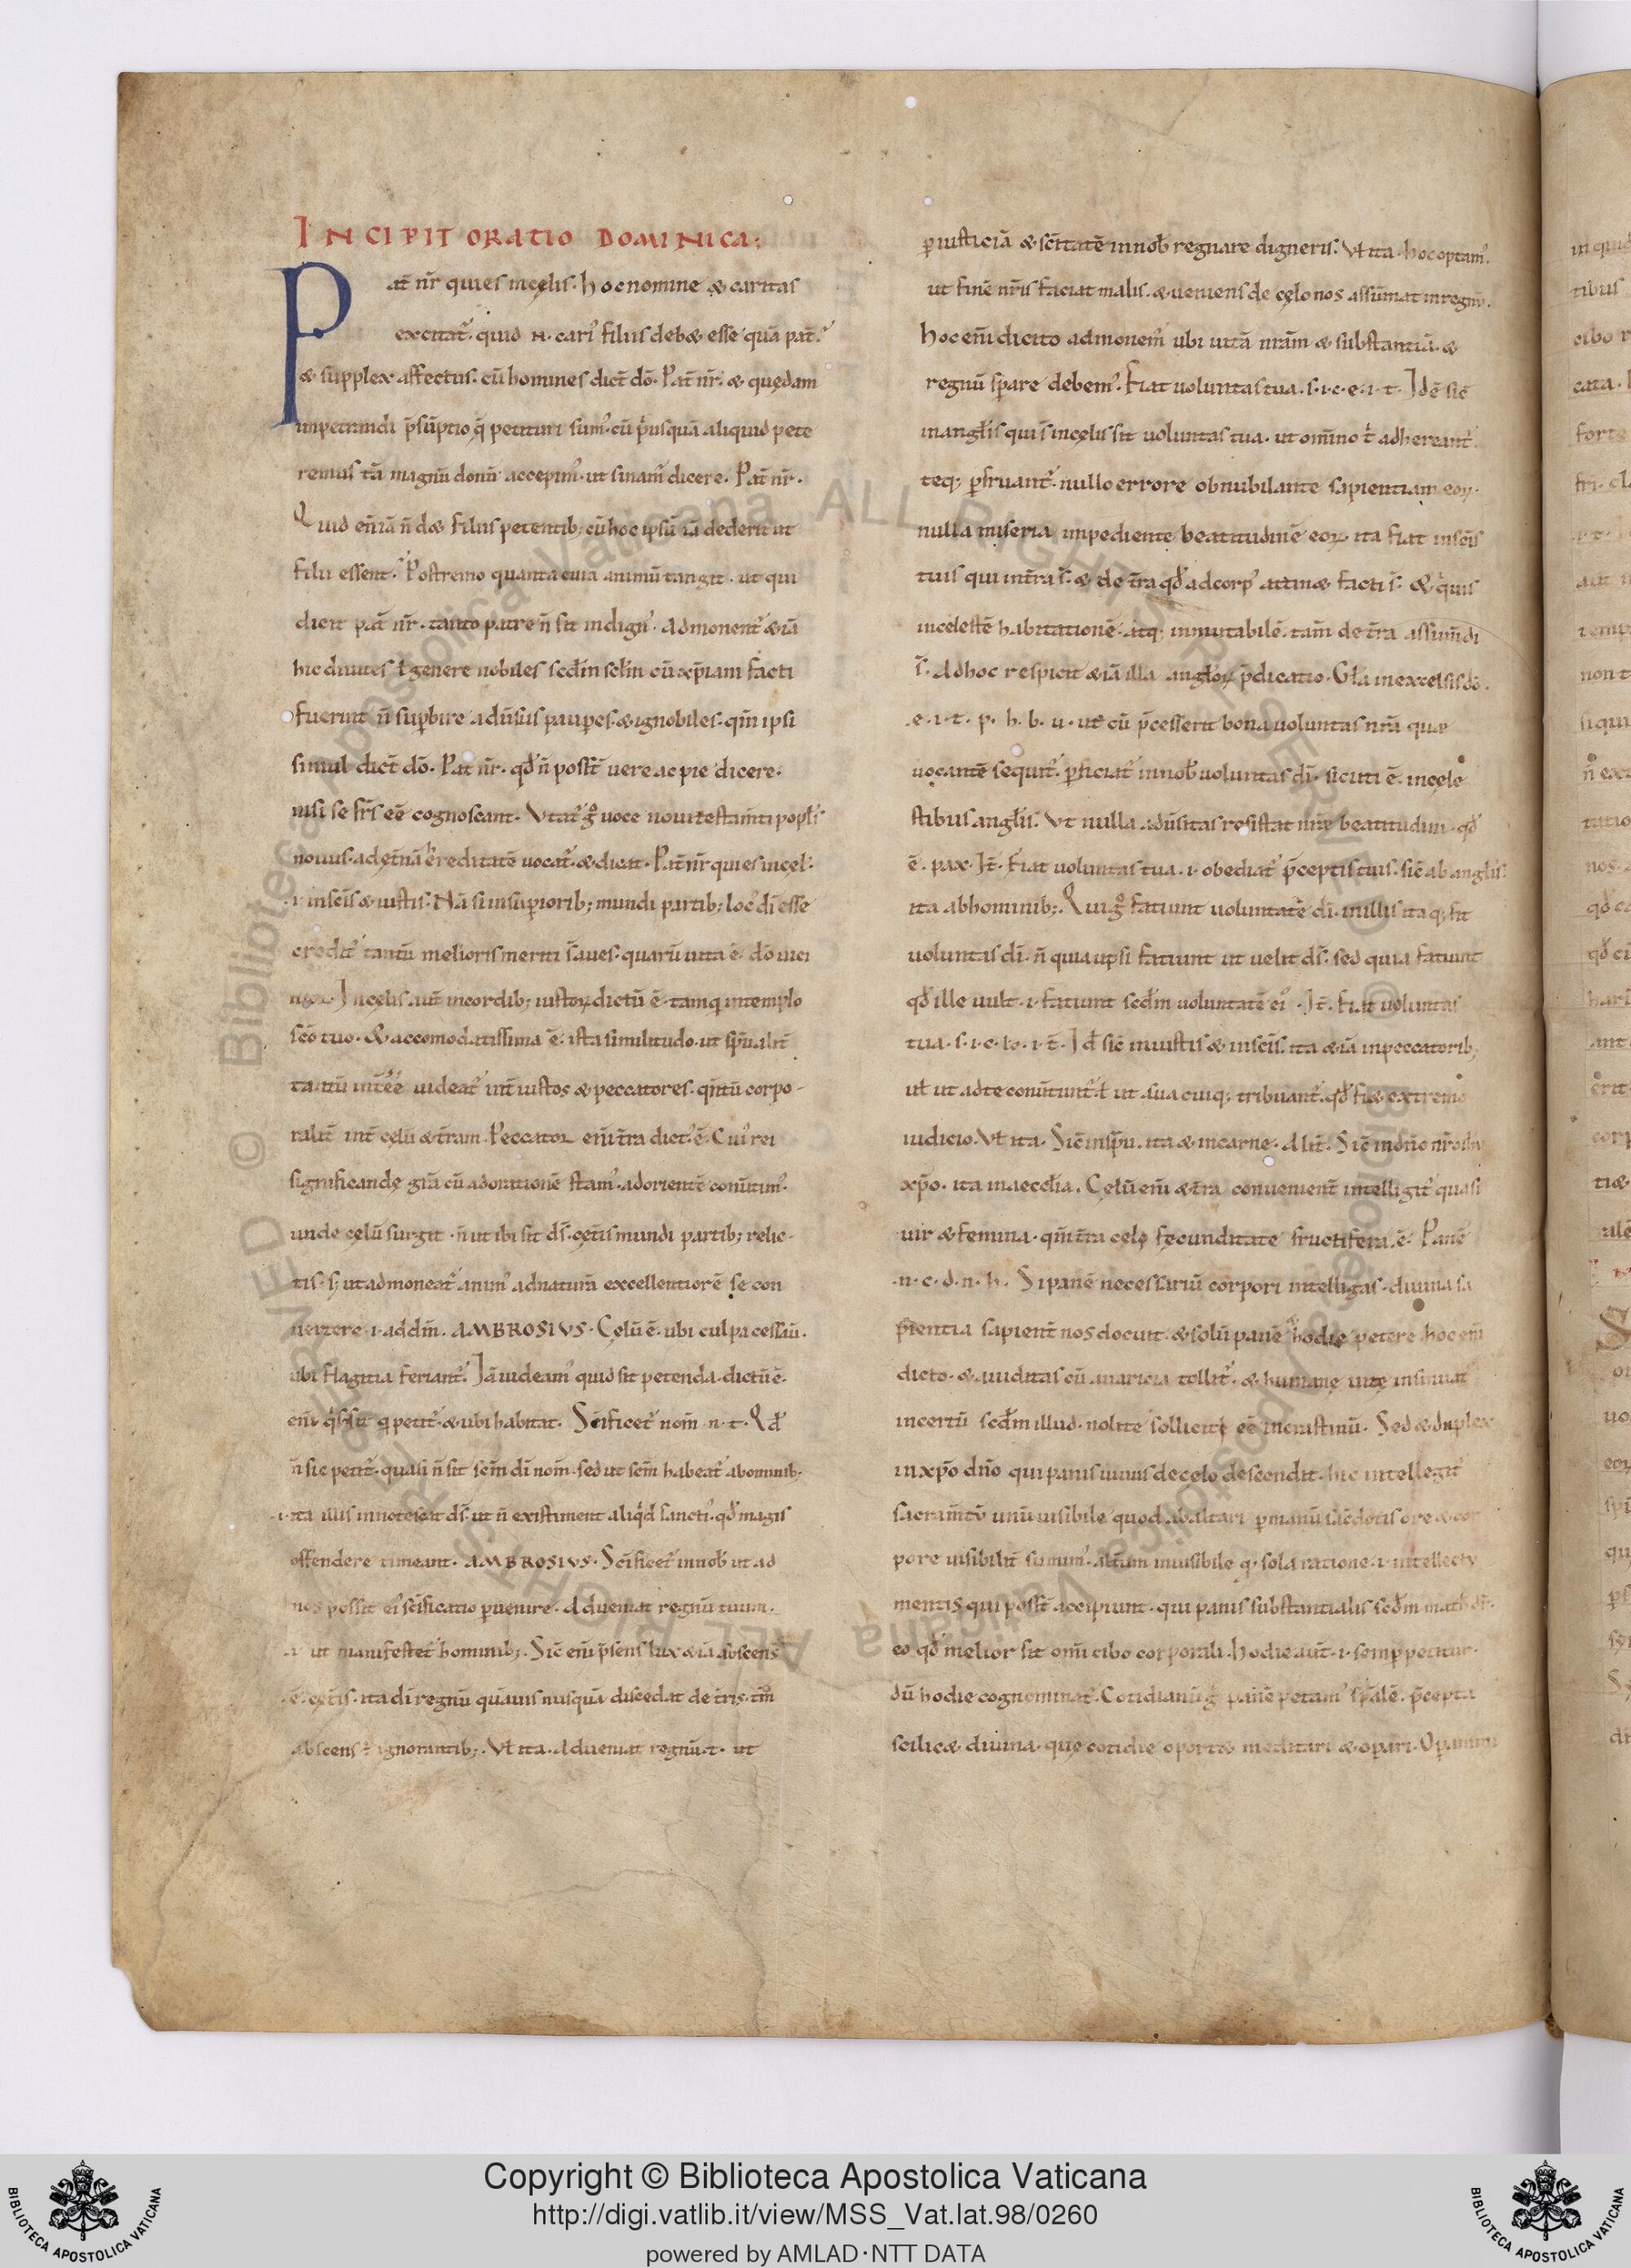 INCIPIT ORATIO DOMINICA:
Pat̄ nr̄ qui es in cęlis. hoc nomine & caritas
excitat̾. quid N. cari᾽ filius deb& esse quā pat̄.
& supplex affectus. cū homines dic̄t dō. Pat̄ nr̄. & quędam
impetrandi p̄sūptio q̄ petituri sum᾽. cū p̾usquā aliquid pete
remus tā magnū donū accepim᾽. ut sinam̾ dicere. Pat̄ nr̄.
Quid en̄ iā n̄ d& filiis petentib; cū hoc ipsū iā dederit ut
filii essent. Postremo quanta cura animū tangit. ut qui
dicit pat̄ nr̄. tanto patre n̄ sit indign᾽. Admonent̾ & iā
hic diuites ł genere nobiles scd̄m sclm̄ cū xp̄iani facti
fuerint n̄ sup̱bire adūsus paup̱es. & ignobiles. qm̄ ipsi
simul dic̄t dō. Pat̄ nr̄. qd̾ n̄ poss̄t uere ac pie dicere.
nisi se fr̄s eē cognoscant. Vtat̾ g̊ uoce noui testam̄ti popl̾s
nouus. ad et̄nā hereditatē uocat̾. & dicat. Pat̄ nr̄ qui es in cęl̾.
.i. in scīs & iustis. Nā si in sup̱iorib; mundi partib; loc᾽ dī esse
credit̾ tantū melioris meriti s̄ aues. quarū uita ē dō uici
nior. In cęlis aūt in cordib; iustoꝝ dictū ē. tamq̄ in templo
scō tuo. & accomodatissima ē. ista similitudo. ut sp̄ualit̄
tantū int̄eē uideat̾ int̄ iustos & peccatores. qn̄tū corpo-
ralit̄ int̄ cęlū & t̄ram. Peccator en̄ t̄ra dict᾽ ē. Cui᾽ rei
significandę grā cū ad orationē stam᾽. ad orientē conūtim̾.
unde cęlū surgit. n̄ ut ibi sit ds̄. cęt̄is mundi partib; relic-
tis. s; ut admoneat̾ anim᾽ ad naturā excellentiorē se con
uertere .i. ad dm̄. AMBROSIVS. Cęlū ē. ubi culpa cessau̅.
ubi flagitia feriant̾. Iā uideam᾽ quid sit petenda. dictū ē.
en̄ q̾s sit q̾ petit̾. & ubi habitat. Scīficet̾ nom̄ n. t. Qd̾
n̄ sic petit̾. quasi n̄ sit scm̄ dī nom̄. sed ut scm̄ habeat̾ ab ominib;
.i. ita illis innotescat ds̄. ut n̄ existiment aliq̾d sancti᾽. qd̾ magis
offendere timeant. AMBROSIVS. Scīficet̾ in nob̾ ut ad
nos possit ei᾽ scīficatio p̱uenire. Adueniat regnū tuum.
.i. ut manifestet̾ hominib;. Sic̄ en̄ p̄sens lux & iā abscens
ē cęcis. ita dī regnū quāuis nusquā discedat de t̄ris. tm̄
abscens ē ignorantib;. Vł ita. Adueniat regnū .t. ut
p̱ iusticiā & scītatē in nob̾ regnare digneris. Vł ita. hoc optam᾽.
ut finē nr̄is faciat malis. & ueniens de cęlo nos assūmat in regnū.
Hoc en̄ dicto admonem̾ ubi uitā nr̄am & substantiā. &
regnū sp̱are debem᾽. Fiat uoluntas tua. s. i. c. e. i. t. Idē sic̄
in angl̾is qui s̄ in cęlis sit uoluntas tua. ut om̄ino t̾ adhereant.
teq; p̱fruant̾. nullo errore obnubilante sapientiam eoꝝ.
nulla miseria impediente beatitudinē eoꝝ. ita fiat in scīs
tuis qui in t̄ra s̄. & de t̄ra qd̾ ad corp᾽ attin& facti s̄. & q̾uis
in celestē habitationē. atq; inmutabilē. tam̄ de t̄ra assum̄di
s̄. Ad hoc respicit & iā illa angl̾oꝝ p̄dicatio. Gl̾a in excelsis dō.
.e. i. t. p. h. b. u. ut cū p̄cesserit bona uoluntas nr̄a quę
uocantē sequit̾. p̱ficiat̾ in nob̾ uoluntas dī. sicuti ē. in cęle
stibus angl̾is. Vt nulla adūsitas resistat nr̄ę beatitudini. qd̾
ē. pax. It̄. Fiat uoluntas tua .i. obediat̾ p̄ceptis tuis. sic̄ ab angl̾is.
ita ab hominib;. Qui g̊ fatiunt uoluntatē dī. in illis itaq; fit
uoluntas dī. n̄ quia ipsi fatiunt ut uelit ds̄. sed quia fatiunt
qd̾ ille uult .i. fatiunt scd̄m uoluntatē ei᾽. It̄. Fiat uoluntas
tua. s. i. c. &. i. t̄. Id̾ sic̄ in iustis & in scīs. ita & iā in peccatorib;
uł ut ad te conūtunt̾. ł ut sua cuiq; tribuant̾. qd̾ fi& extremo
iudicio. Vł ita. Sic̄ in sp̄u. ita & in carne. Alit̄. Sic̄ in dn̄o nr̄o ihu
xp̄o. ita in aeccl̾ia. Cęlū en̄ & t̄ra conuenient̄ intelligit̾ quasi
uir & femina. qm̄ t̄ra cęlo fęcunditate fructifera ē. Panē
.n. c. d. n. h. Si panē necessariū corpori intelligas. diuina sa
pientia sapient̄ nos docuit. & solū panē & hodie petere. hoc en̄
dicto. & auiditas cū auaricia tollit̾. & humanę uitę insinuat̾
incertū scd̄m illud. nolite solliciti eē in crastinū. Sed & duplex
in xp̄o dn̄o qui panis uiuus de celo descendit. hic intellegit̾
sacram̄tū unū uisibile quod ab altari p̱ manū sac̄dotis ore & cor
pore uisibilit̄ sumim᾽. alt̄um inuisibile q. sola ratione .i. intellectu
mentis qui poss̄t accipiunt. qui panis substantialis scd̄m math dr̄.
eo qd̾ melior sit om̄i cibo corporali. Hodie aūt .i. semp̱ petitur.
dū hodie cognominat̾. Cotidianū g̊ panē petam᾽ sp̄alē. p̄cepta
scilic& diuina. quę cotidie oport& meditari & op̱ari. Op̱amini
Copyright © Biblioteca Apostolica Vaticana
http://digi.vatlib.it/view/MSS_Vat.lat.98/0260
powered by AMLAD·NTT DATA